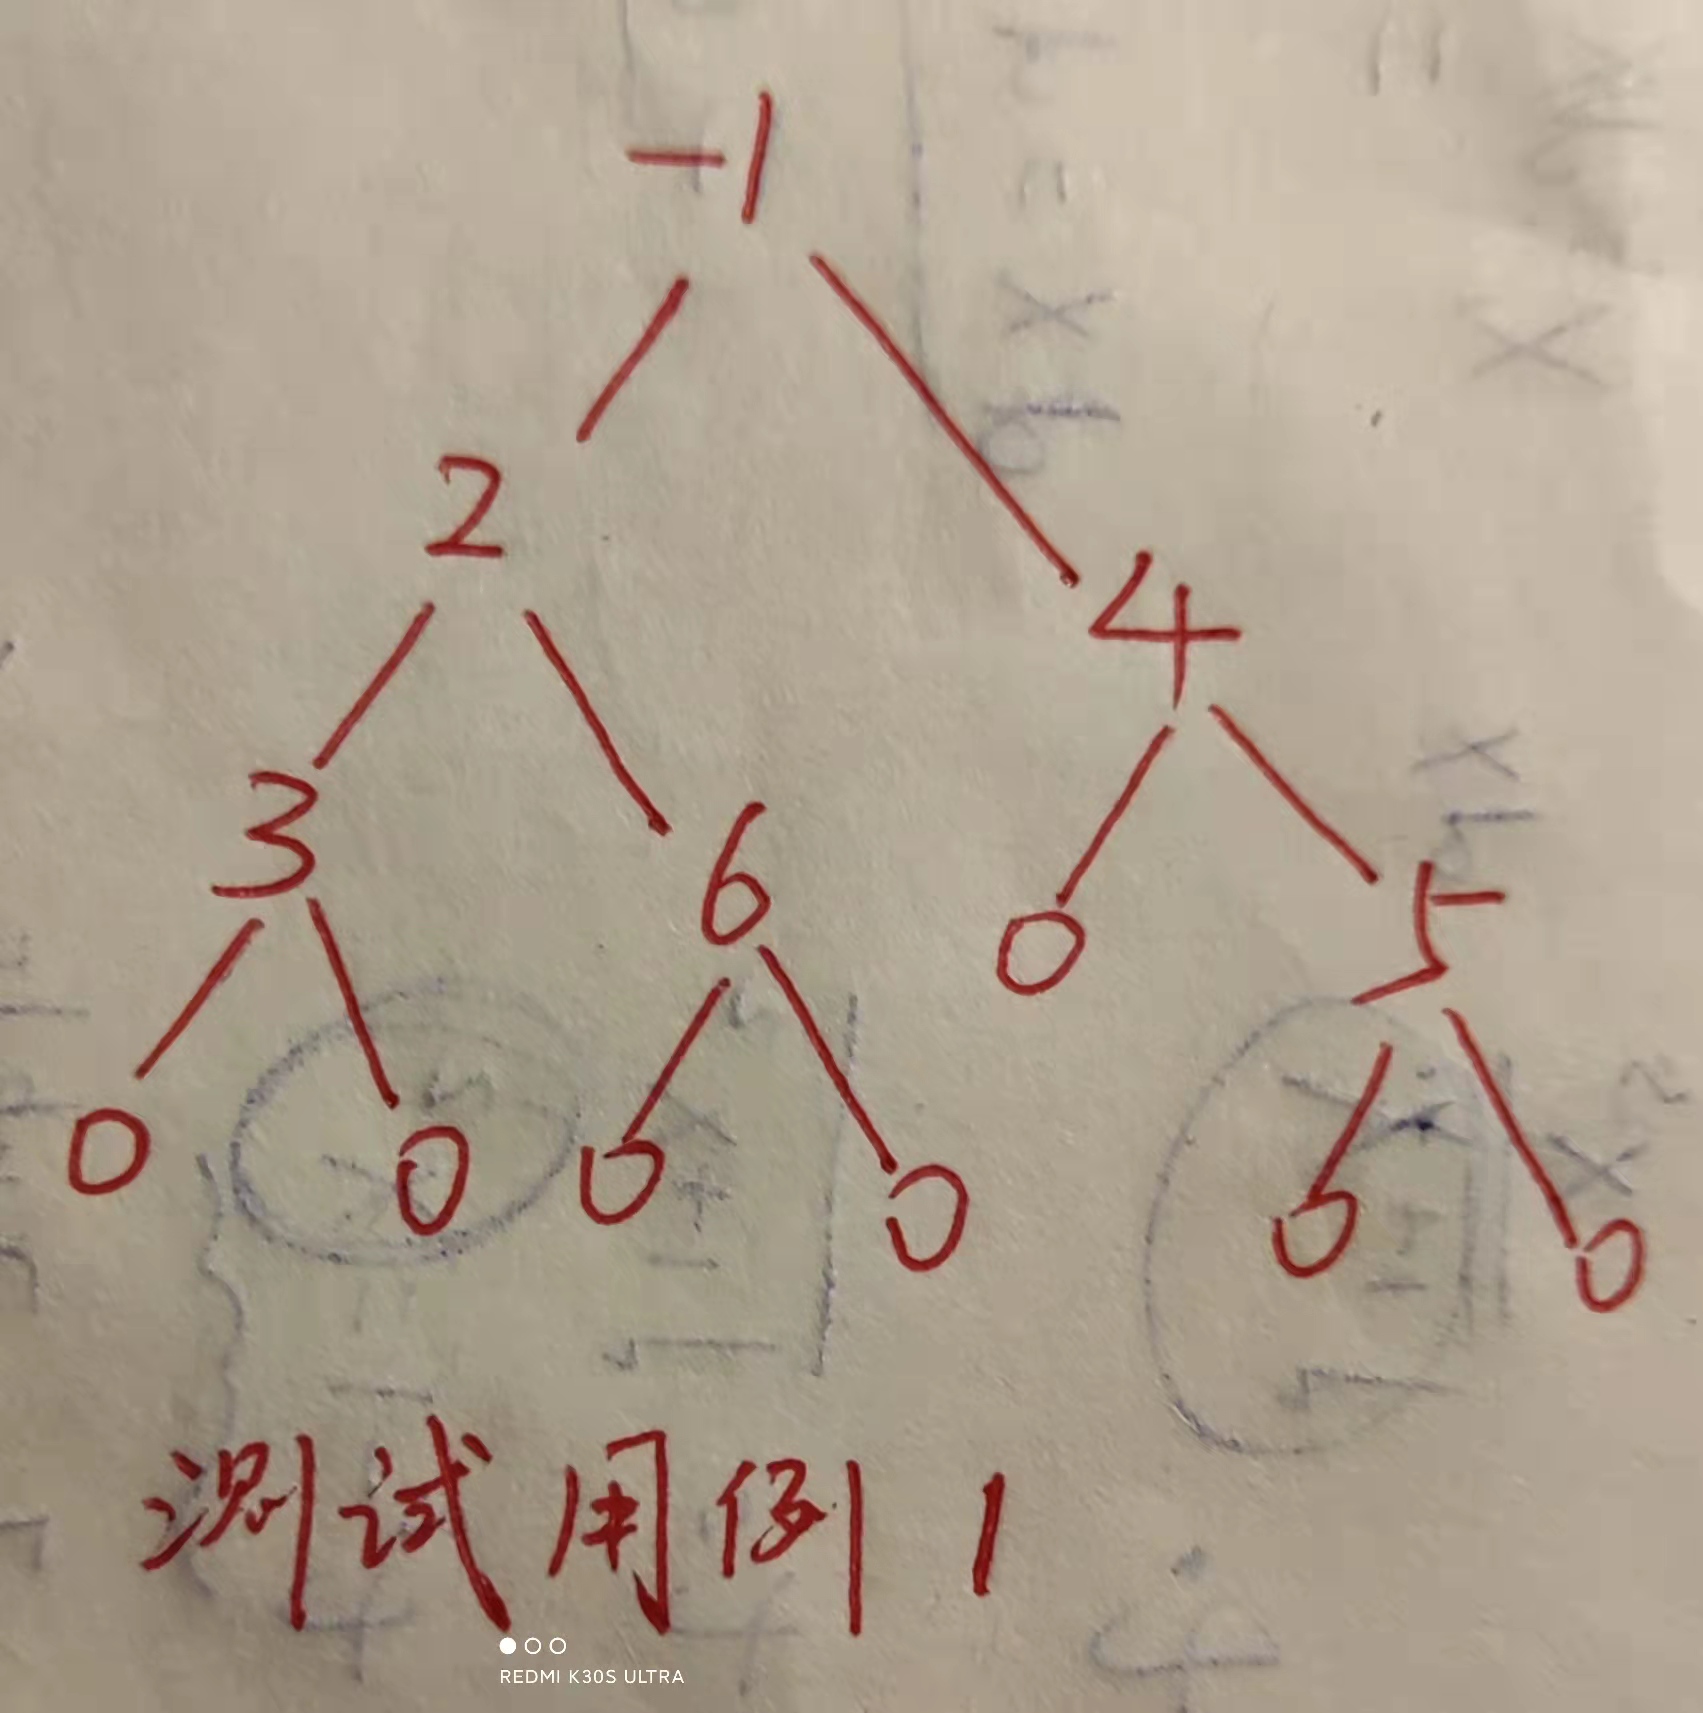 -1
2
4
3
6
0
5
0
0
0
0
0
0
测试用例1
REDMI K30S ULTRA